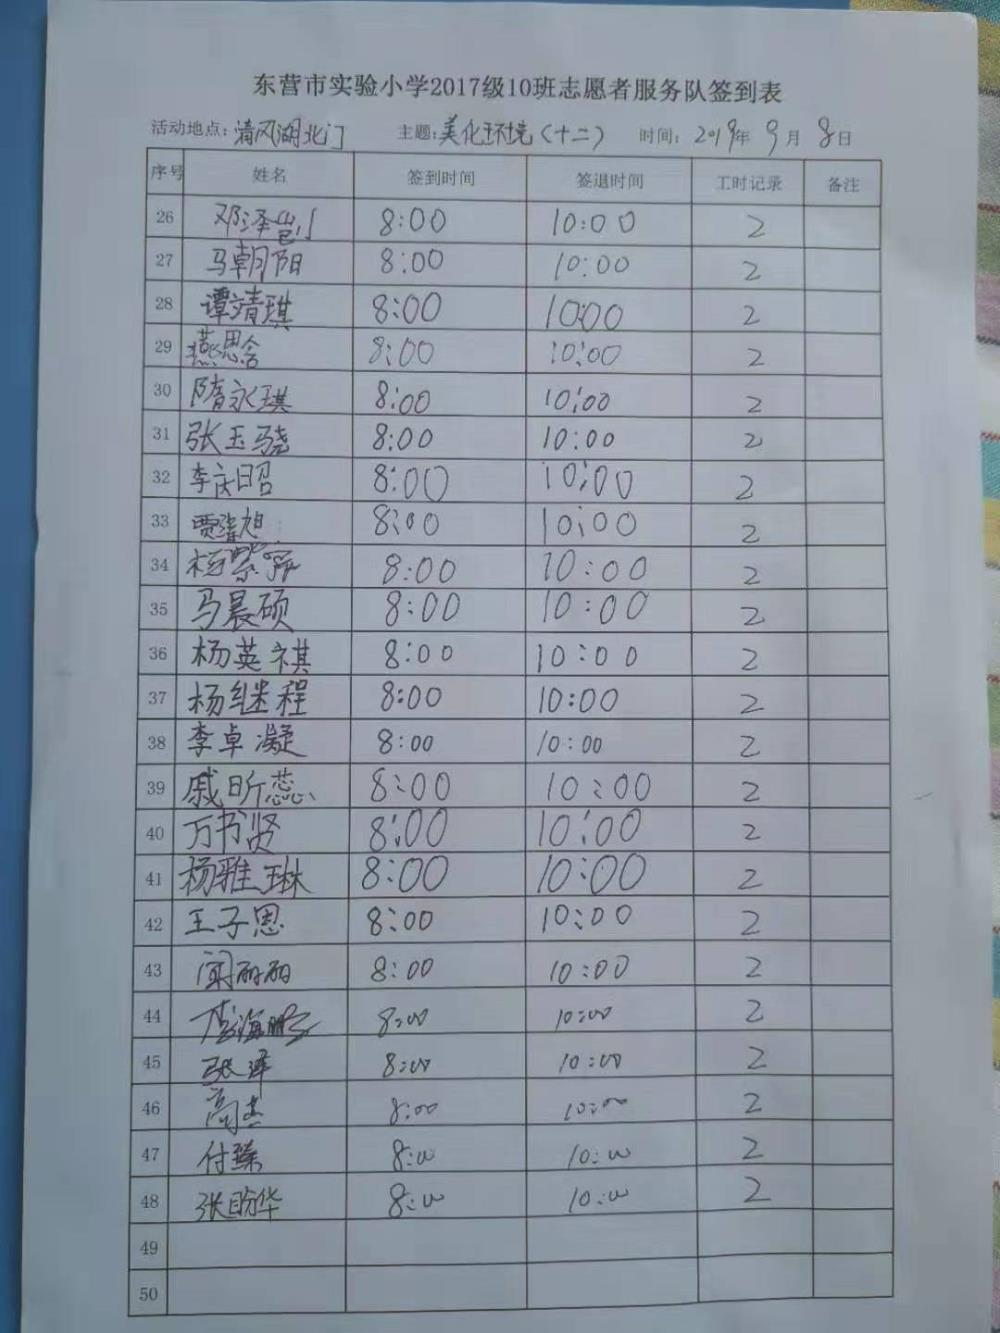 东营市实验小学2017级10班志愿者服务队签到表
活动地点:清风湖北门 主题:美化环境(十二) 时间:2019年9月8日
序号 姓名 签到时间 签退时间 工时记录 备注
26 邓泽凯 8:00 10:00 2
27 马朝阳 8:00 10:00 2
28 谭靖琪 8:00 10:00 2
29 燕思含 8:00 10:00 2
30 隋永琪 8:00 10:00 2
31 张玉骁 8:00 10:00 2
32 李庆昭 8:00 10:00 2
33 8:00 10:00 2
34 8:00 10:00 2
35 马晨硕 8:00 10:00 2
36 杨英祺 8:00 10:00 2
37 杨继程 8:00 10:00 2
38 李卓凝 8:00 10:00 2
39 戚昕蕊 8:00 10:00 2
40 万书贤 8:00 10:00 2
41 杨雅琳 8:00 10:00 2
42 王子恩 8:00 10:00 2
43 8:00 10:00 2
44 李海鹏 8:00 10:00 2
45 张泽 8:00 10:00 2
46 高杰 8:00 10:00 2
47 付臻 8:00 10:00 2
48 张盼华 8:00 10:00 2
49
50